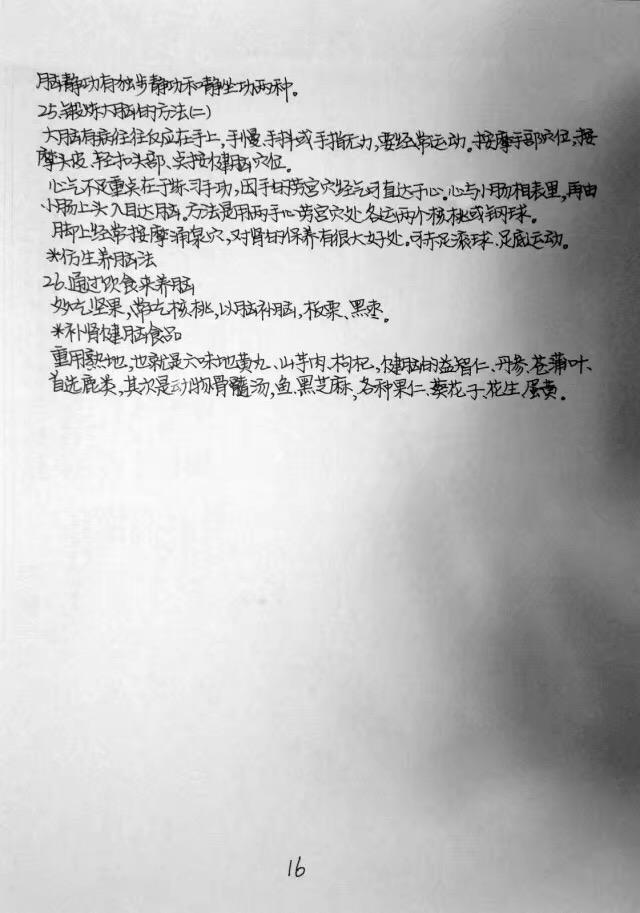 脑静功有独步静功和静坐功两种。
25.锻炼大脑的方法(二)
大脑有病往往反应在手上,手慢、手抖或手指无力,要经常运动。按摩手部穴位,按
摩头皮、轻扣头部、点按健脑穴位。
心气不足重点在于练习手功,因手的劳宫穴经气可直达于心。心与小肠相表里,再由
小肠上头入目达脑。方法是用两手心劳宫穴处各运两个核桃或钢球。
脚上经常按摩涌泉穴,对肾的保养有很大好处。可赤足滚球、足底运动。
*仿生养脑法
26.通过饮食来养脑
多吃坚果,常吃核桃,以脑补脑,板栗、黑枣。
*补肾健脑食品
重用熟地,也就是六味地黄丸、山芋肉、枸杞,健脑的益智仁、丹参、苍蒲叶、
首选鹿类,其次是动物骨髓汤,鱼、黑芝麻,各种果仁、葵花子、花生、蛋黄。
16